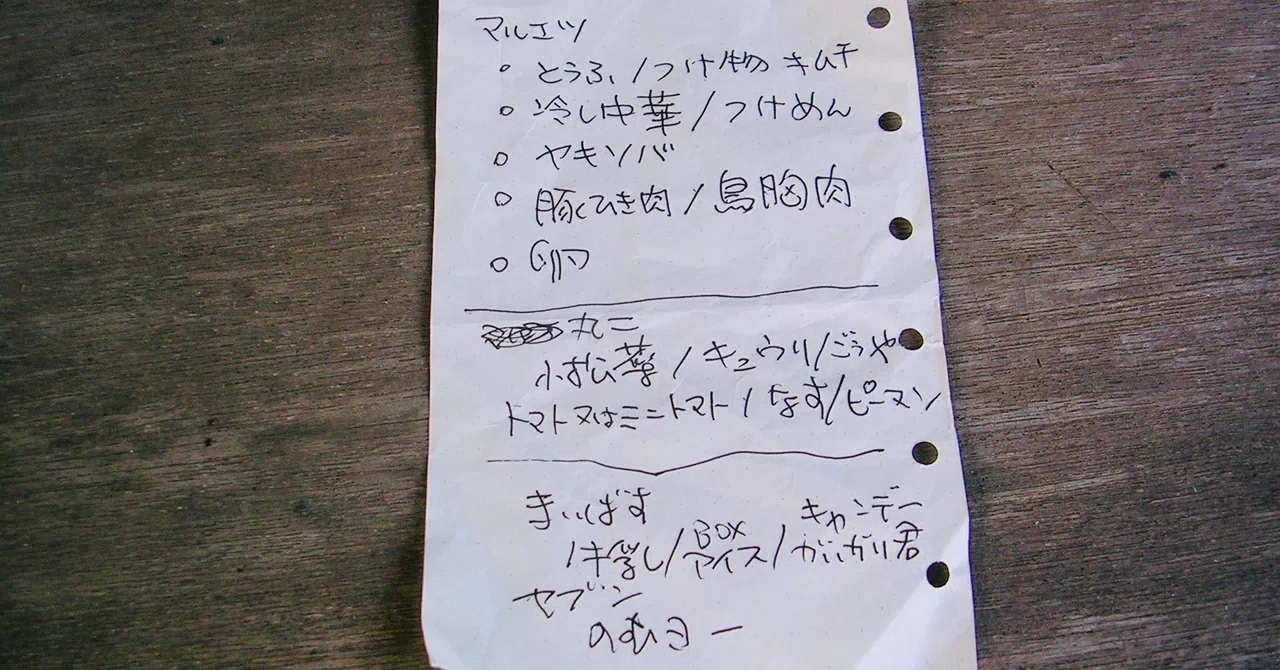 マルエツ
○ とうふ/つけ物 キムチ
○ 冷し中華/つけめん
○ ヤキソバ
○ 豚ひき肉/鳥胸肉
○ 卵
丸二
小松菜/キュウリ/ごうや
トマト又はミニトマト/なす/ピーマン
まいばす
牛乳/BOXアイス/キャンデー ガリガリ君
セブン
のむヨー